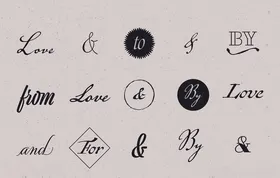 Love & to & BY
from Love & By Love
and For & By &